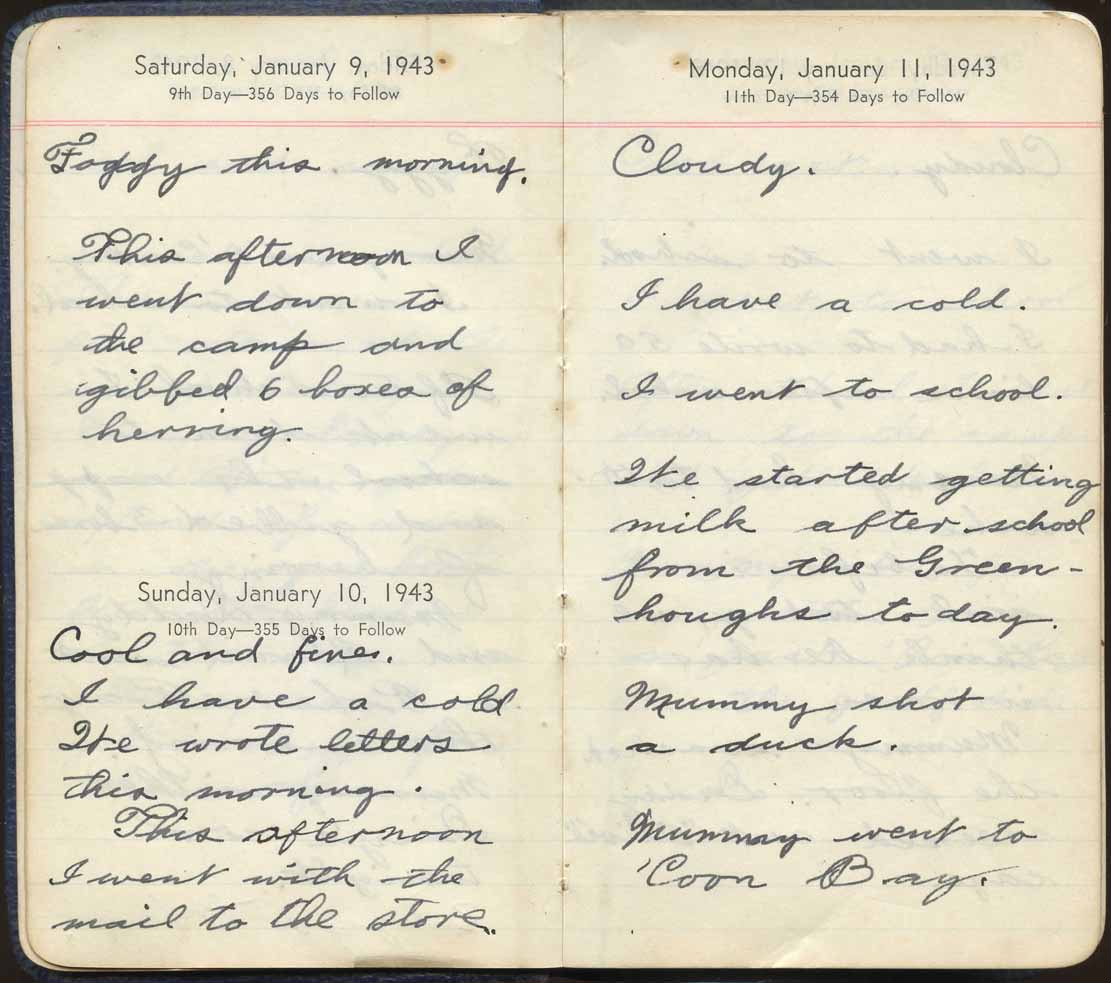 Saturday, January 9, 1943
9th Day—356 Days to Follow
Foggy this morning.
This afternoon I
went down to
the camp and
gibbed 6 boxes of
herring.
Sunday, January 10, 1943
10th Day—355 Days to Follow
Cool and fine.
I have a cold
We wrote letters
this morning.
This afternoon
I went with the
mail to the store.
Monday, January 11, 1943
11th Day—354 Days to Follow
Cloudy.
I have a cold.
I went to school.
We started getting
milk after school
from the Green-
houghs today.
Mummy shot
a duck.
Mummy went to
'Coon Bay.